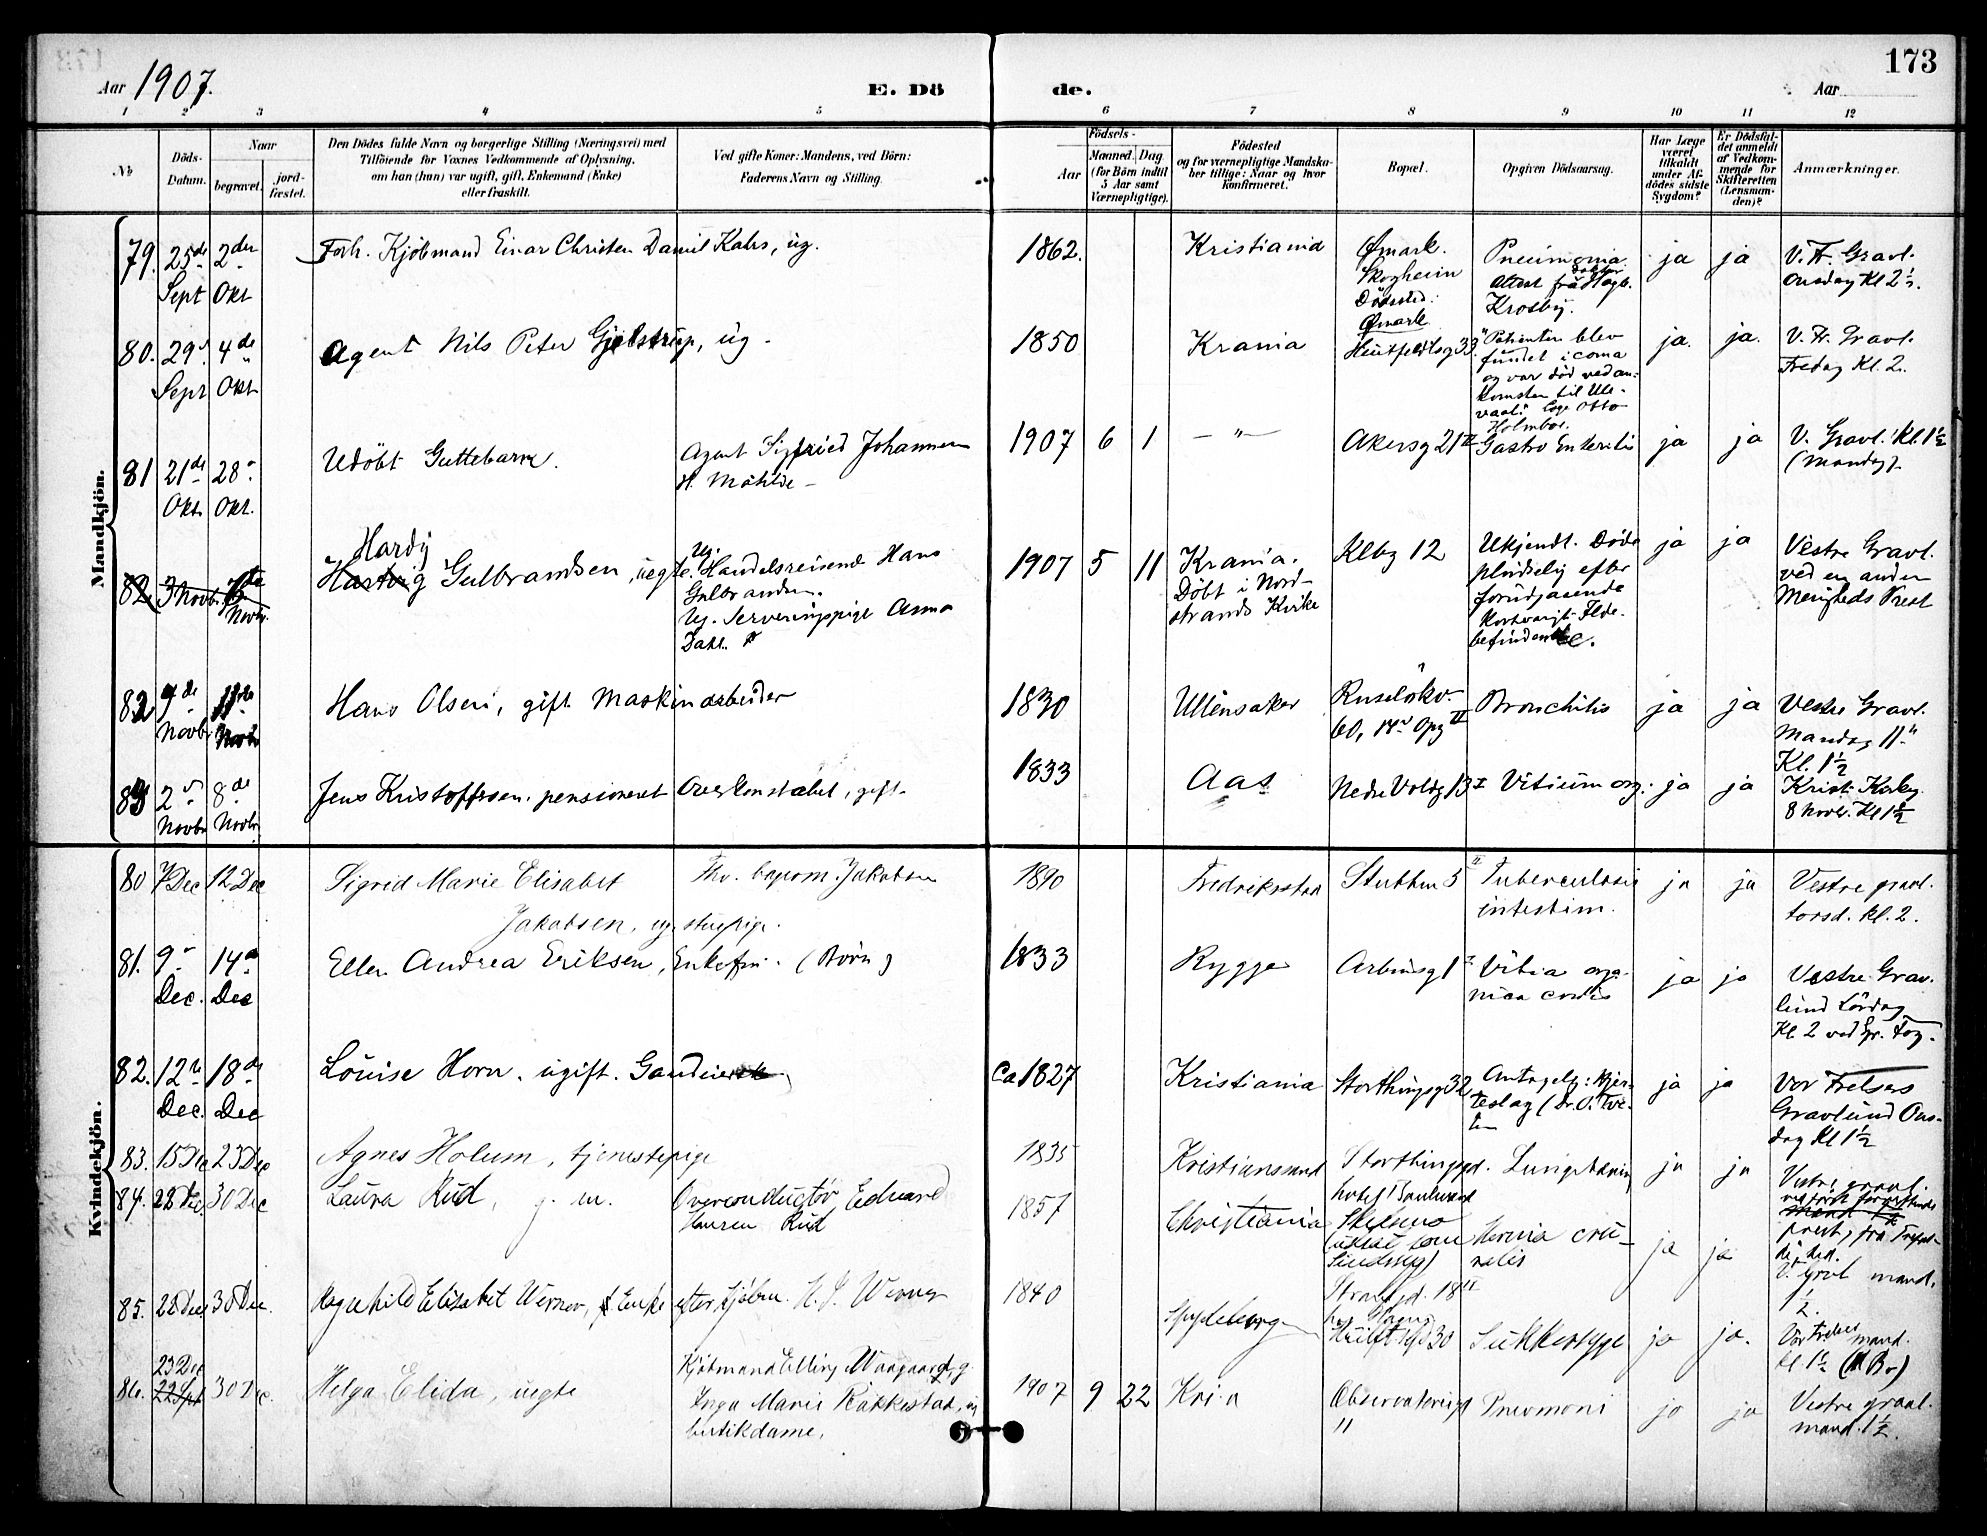 173
Aar 1907. E. Dö de. Aar
1 2 3 4 5 6 7 8 9 10 11 12
No Döds-Datum. Naar begravet. jord-fæstet. Den Dödes fulde Navn og borgerlige Stilling (Næringsvei) med Tilföiende for Voxnes Vedkommende af Oplysning, om han (hun) var ugift, gift, Enkemand (Enke) eller fraskilt. Ved gifte Koner: Mandens, ved Börn: Faderens Navn og Stilling. Födsels- Aar Maaned. Dag (for Börn indtil 5 Aar samt Værnepligtige). Födested og for værnepligtige Mandskaber tillige: Naar og hvor konfirmeret. Bopæl. Opgiven Dödsaarsag. Har Læge været tilkaldt under Afdödes sidste Sygdom? Er Dödsfaldet anmeldt af Vedkommende for Skifteretten (Lensmanden)? Anmærkninger.
Mandkjön.
79. 25de Sept 2den Okt Forh. Kjöbmand Einar Christen Daniel Kahrs, ug. 1862. Kristiania Ømark. Skogheim Dödssted: Ømark Pneumonia. Attest fra Doktor Krosby. ja ja V. Fr. Gravl. Onsdag Kl 2½.
80. 29 Sept 4de Okt Agent Nils Peter Gjelstrup, ug. 1850 Krania Huitfeldtsg 33 "Patienten blev fundet i coma og var död ved ankomsten til Ulevaal." Læge Otto Holmboe. ja. ja. V. Fr. Gravl. Fredag Kl. 2.
81 21de Okt. 28 Okt. Udöbt Guttebarn. Agent Sigfried Johannesen H. Mathilde 1907 6 1 — " — Akersg 21 II Gastro Enteritis ja ja V. Gravl. Kl. 1½ (Mandag).
82 3 Novbr. 6te Novbr. Hardy Hartvig Gulbrandsen, uegte. Ug. Handelsreisende Hans Gulbrandsen. Ug. Serveringspige Anna Dahl. 1907 5 11 Krania. Döbt i Nordstrands Kirke Klbg 12 Ukjendt. Döde pludselig efter forudgaaende kortvarigt Ildebefindende. ja ja Vestre Gravl. ved en anden Menigheds Prest
82 7de Novbr 11te Novbr Hans Olsen, gift Maskinarbeider 1830 Ullensaker Ruselökv. 60, 14 Opg II Bronchitis ja ja Vestre Gravl. Mandag 11te Kl. 1½
83 2 Novbr 8de Novbr Jens Kristoffersen. pensioneret Overkonstabel, gift. 1833 Aas Nedre Voldg 13 I Vitium org. ja ja Krist. Krkg. 8 Novbr. Kl 1½
Kvindekjön.
80 7 Dec 12 Dec Sigrid Marie Elisabet Jakobsen, ug. stuepige. Thv. Jakobsen 1890 Fredriksstad 5 II Tuberculosis intestin. ja ja Vestre gravl. torsd. kl. 2.
81. 9 Dec. 14de Dec Ellen Andrea Eriksen, Enkefru. (Börn) 1833 Rygge Arbinsg 1 Vitia organica cordis ja ja Vestre Gravlund Lördag Kl 2 ved Spr. Fog.
82. 12 Dec. 18de Dec Louise Horn. ugift. ca 1827 Kristiania Storthingsg 32 Antagelig: Hjerteslag (Dr. O. ja ja Vor Frelsers Gravlund Onsdag Kl 1½
83. 15 Dec 23 Dec Agnes Holum, tjenestepige 1835 Kristianssund Storthingsgd. hotel Boulevard ja ja Vestre gravl.
84. 28 Dec. 30 Dec Laura Rud, g. m. Overconductör Edvard Rud 1857 Christiania Hernia cruralis ja ja prest, fra
85. 28 Dec. 30 Dec. Ragnhild Elisabet Werner, Enke efter kjöbm. H. J. Werner 1840 Spydeberg 30 Sukkersyge ja ja. V. gravl mand. 1½. Vor Frelsers mand. kl. 1½
86. 23 Dec 22 Spt 30 Dec. Helga Elida, uegte Kjöbmand Elling Waagaard, g. Inga Marie Rakkestad, ug butikdame. 1907 9 22 Kri.a Observatoriegd " Pneumoni ja ja Vestre gravl. mand. 1½.